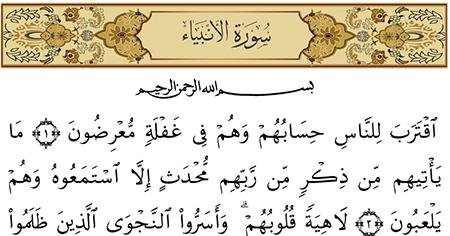 سُورَةُ الأَنْبِيَاء
بِسْمِ اللهِ الرَّحْمَنِ الرَّحِيمِ
ٱقْتَرَبَ لِلنَّاسِ حِسَابُهُمْ وَهُمْ فِى غَفْلَةٍ مُّعْرِضُونَ ﴿١﴾ مَا
يَأْتِيهِم مِّن ذِكْرٍ مِّن رَّبِّهِم مُّحْدَثٍ إِلَّا ٱسْتَمَعُوهُ وَهُمْ
يَلْعَبُونَ ﴿٢﴾ لَاهِيَةً قُلُوبُهُمْ ۗ وَأَسَرُّوا۟ ٱلنَّجْوَى ٱلَّذِينَ ظَلَمُوا۟